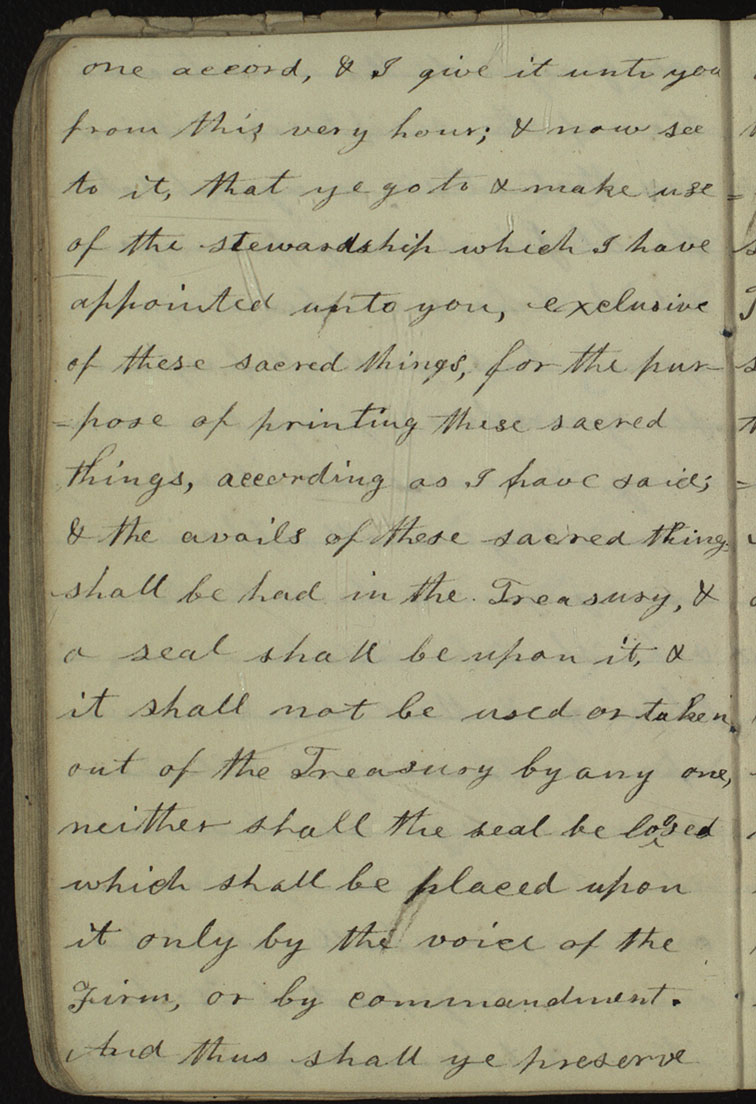 one accord, & I give it unto you
from this very hour; & now see
to it, that ye go to & make use
of the stewardship which I have
appointed unto you, exclusive
of these sacred things, for the pur-
=pose of printing these sacred
things, according as I have said;
& the avails of these sacred things
shall be had in the Treasury, &
a seal shall be upon it, &
it shall not be used or taken
out of the Treasury by any one,
neither shall the seal be loosed
which shall be placed upon
it only by the voice of the
Firm, or by commandment.
And thus shall ye preserve